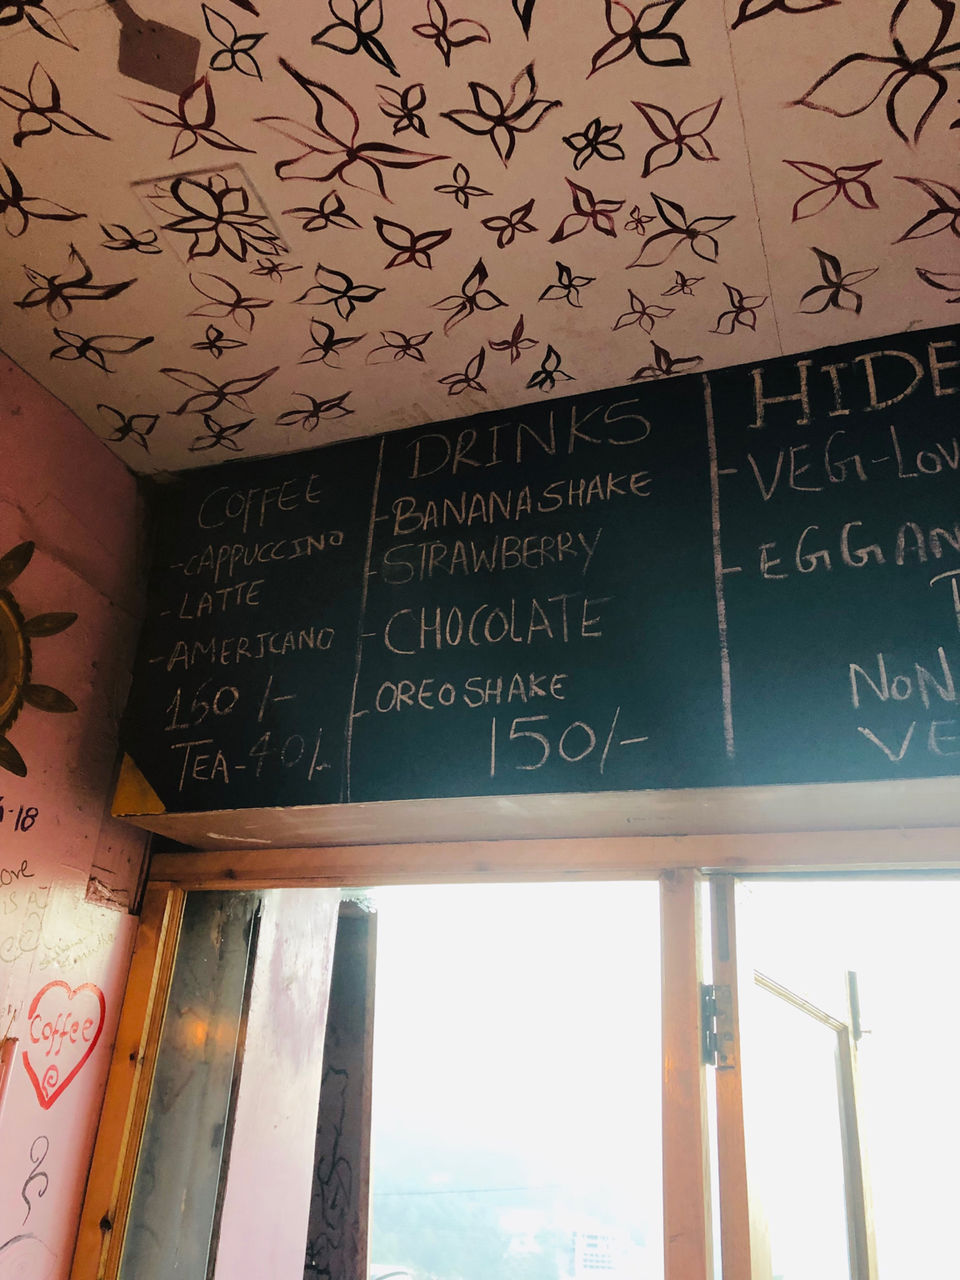 COFFEE
-CAPPUCCINO
-LATTE
-AMERICANO
150 /-
TEA-40/-
DRINKS
-BANANA SHAKE
-STRAWBERRY
-CHOCOLATE
-OREO SHAKE
150/-
HIDE
-VEG-LOV
-EGGAN
T
NON
VE
-18
ove
is a
Coffee